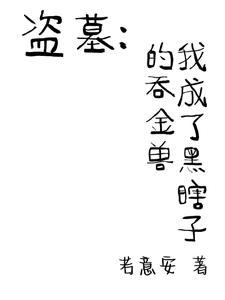 盗墓：
我成了黑瞎子
的吞金兽
若意安 著